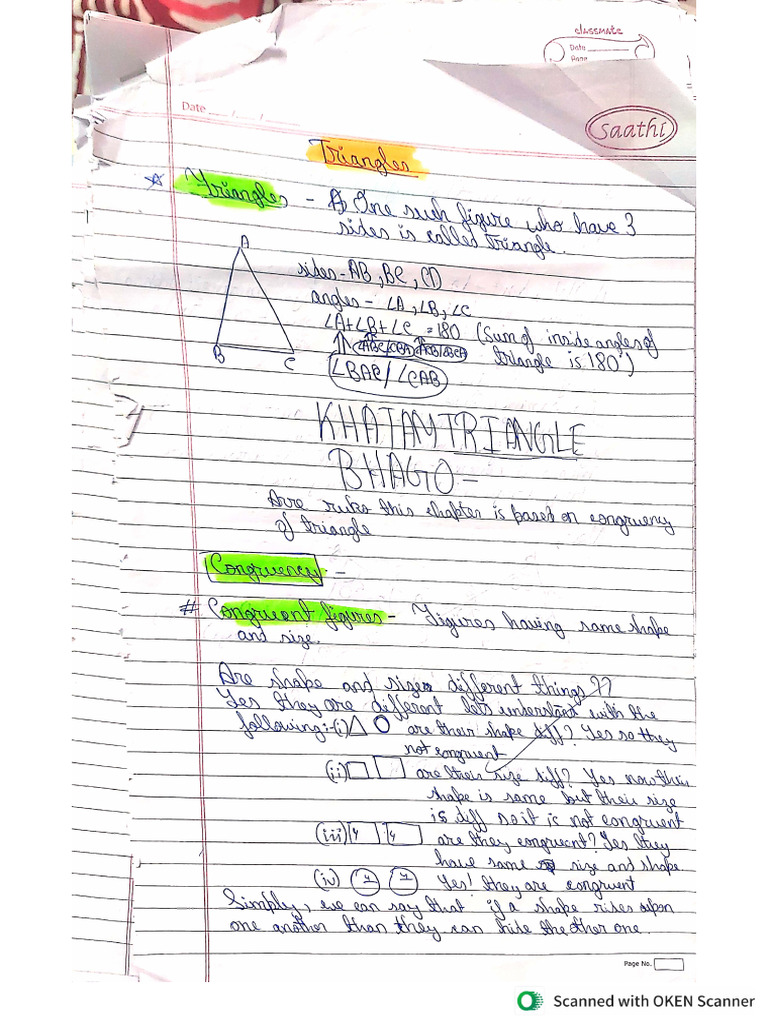 classmate
Date
Page
Date
Saathi
Triangles
Triangles - A One such figure who have 3
sides is called triangle.
A
B
C
sides - AB, BC, CD
angles - ∠A, ∠B, ∠C
∠A+∠B+∠C = 180 (Sum of inside angles of
triangle is 180°)
∠ABC/CBA ACB/BCA
∠BAC/∠CAB
KHATAM TRIANGLE
BHAGO -
Arre ruko this chapter is based on congruency
of triangle
Congruency -
# Congruent figures - Figures having same shape
and size.
Are shape and size different things??
Yes they are different lets understant with the
following:- (i) are their shape diff? Yes so they
not congruent
(ii) are their size diff? Yes now their
shape is same but their size
is diff so it is not congruent
(iii) 4 4 are they congruent? Yes they
have same size and shape
(iv) Yes! they are congruent
Simply, we can say that if a shape rises upon
one another than they can hide the ther one.
Page No.
Scanned with OKEN Scanner